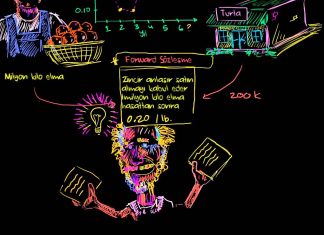 0.10
yıl
?
Turta
Milyon kilo elma
Forward Sözleşme
Zincir anlaşır satın
almayı kabul eder
1milyon kilo elma
hasattan sonra
0.20 / lb.
200 K